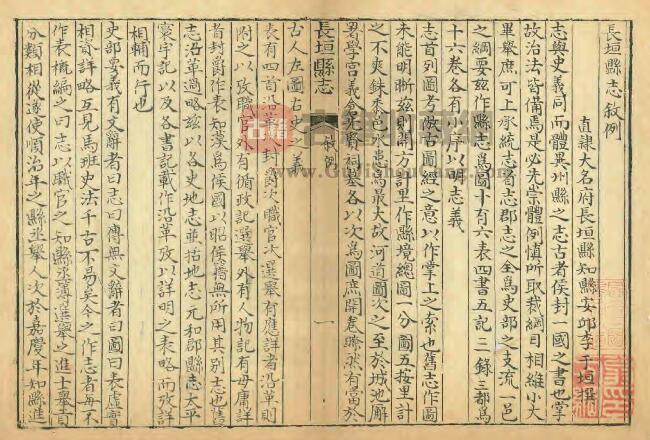 長垣縣志敘例
直隷大名府長垣縣知縣安邱李于垣撰
志與史義同而體異州縣之志古者侯封一國之書也掌
故治法皆備焉是必先崇體例慎所取裁綱目相維小大
畢舉庶可上承統志省志郡志之全爲史部之支流一邑
之綱要兹作縣志爲圖十有六表四書五記三錄三都爲
十六卷各有小序以明志義
志首列圖考倣古圖經之意以作掌上之索也舊志作圖
未能明晰兹則開方計里作縣境總圖一分圖五按里計
之不爽銖黍邑水患爲最大故河道圖次之至於城池廨
署學宮義倉先賢祠墓各以次爲圖庶開卷瞭然有當於
長垣縣志
敘例
一
古人左圖右史之義
表有四首沿革次封爵次職官次選舉有應詳者沿革則
附之以攷職官外有循政記選舉外有人物記有毋庸詳
者封爵作表如漢爲侯國以昭侯褚無所用其別志也舊
志沿革過略兹以各史地志並括地志元和郡縣志太平
寰宇記以及各書記載作沿革攷以詳明之表略而攷詳
相輔而行也
史部要義有文辭者曰志曰傳無文辭者曰圖曰表虛實
相資詳略互見馬班史法千古不易矣今之作志者每不
作表概編之曰志以職官之知縣丞簿選舉之進士舉貢
分類相從遂使順治年之縣丞舉人次於嘉慶年知縣進
古籍
Gujishuwang.com